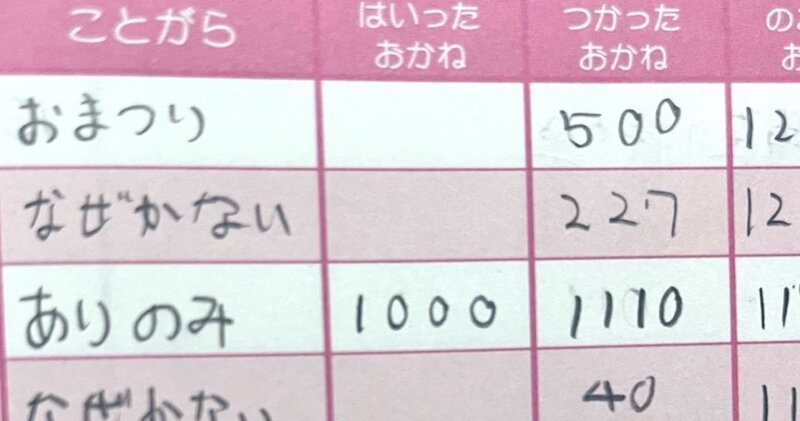 ことがら はいった おかね つかった おかね
おまつり 500 12
なぜかない 227 12
ありのみ 1000 1110 11
なぜかない 40 11